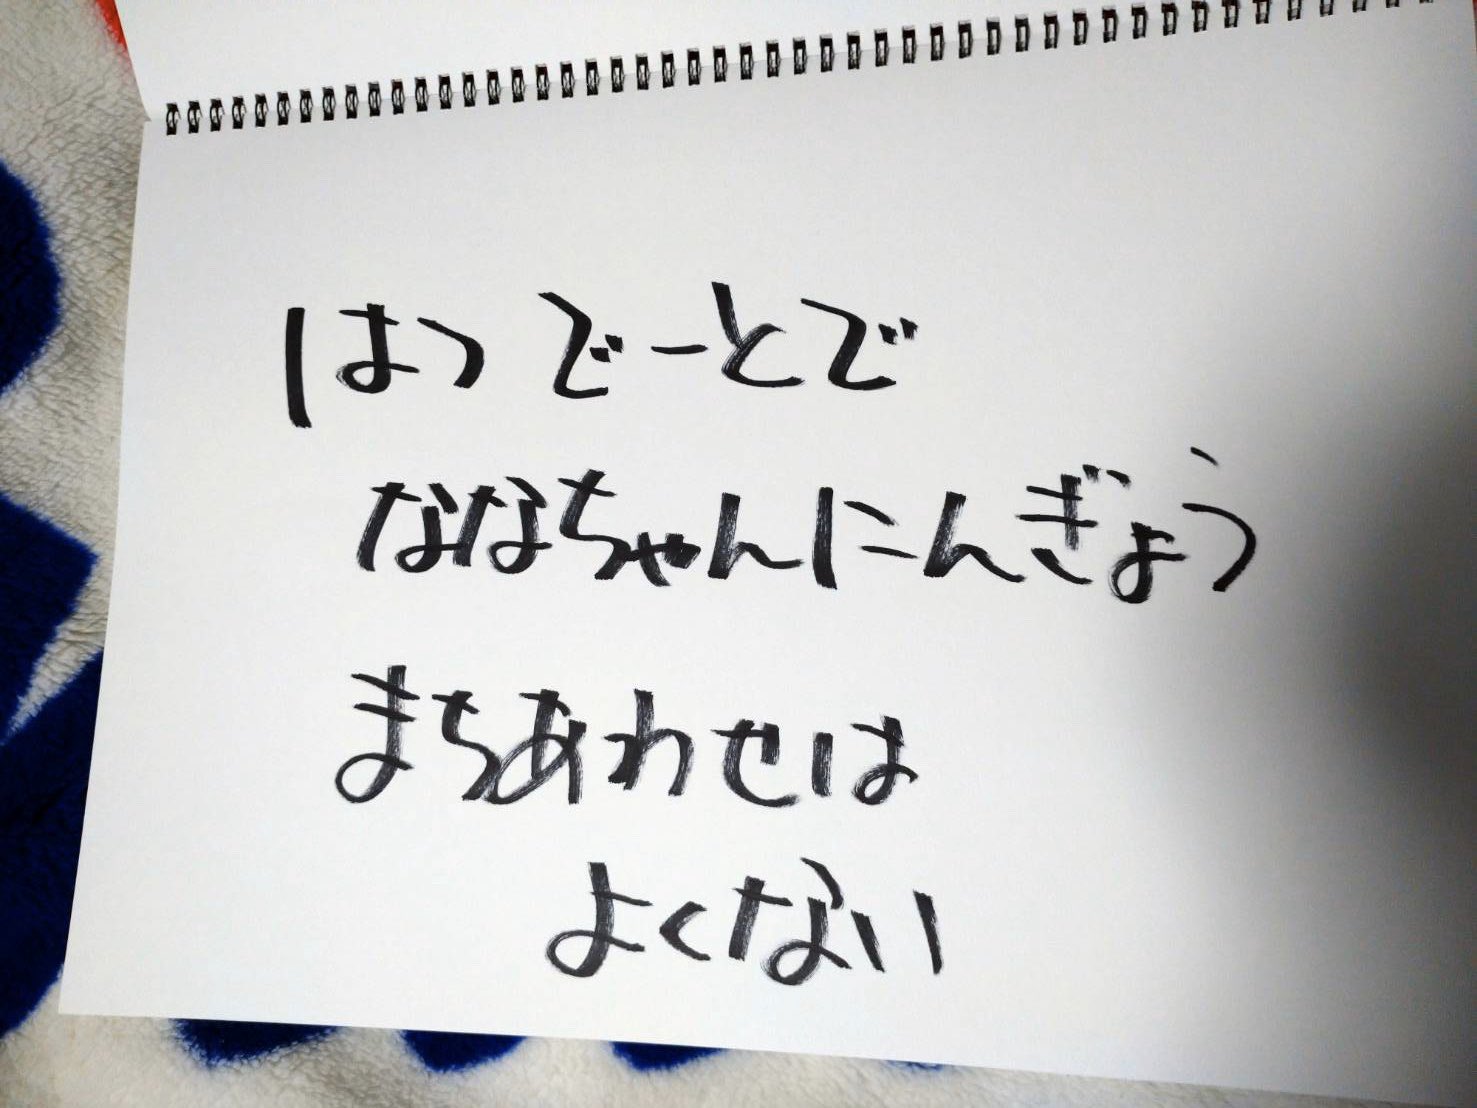 はつでーとで
ななちゃんにんぎょう
まちあわせは
よくない